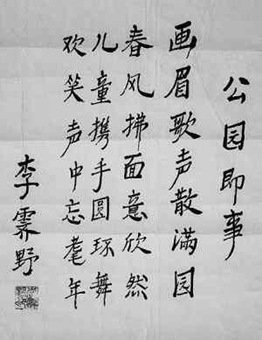 公园即事
画眉歌声散满园
春风拂面意欣然
儿童携手圆环舞
欢笑声中忘耄年
李霁野